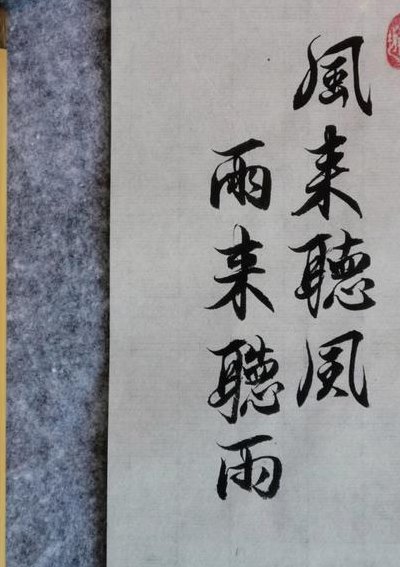 風来聽風
雨来聽雨